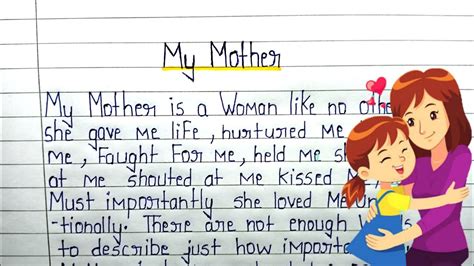 My Mother
My Mother is a Woman like no othe
she gave me life, nurtured me
me, Faught For me, held me sh
at me shouted at me kissed me,
Must importantly she loved me un
-tionally. There are not enough
to describe just how importa